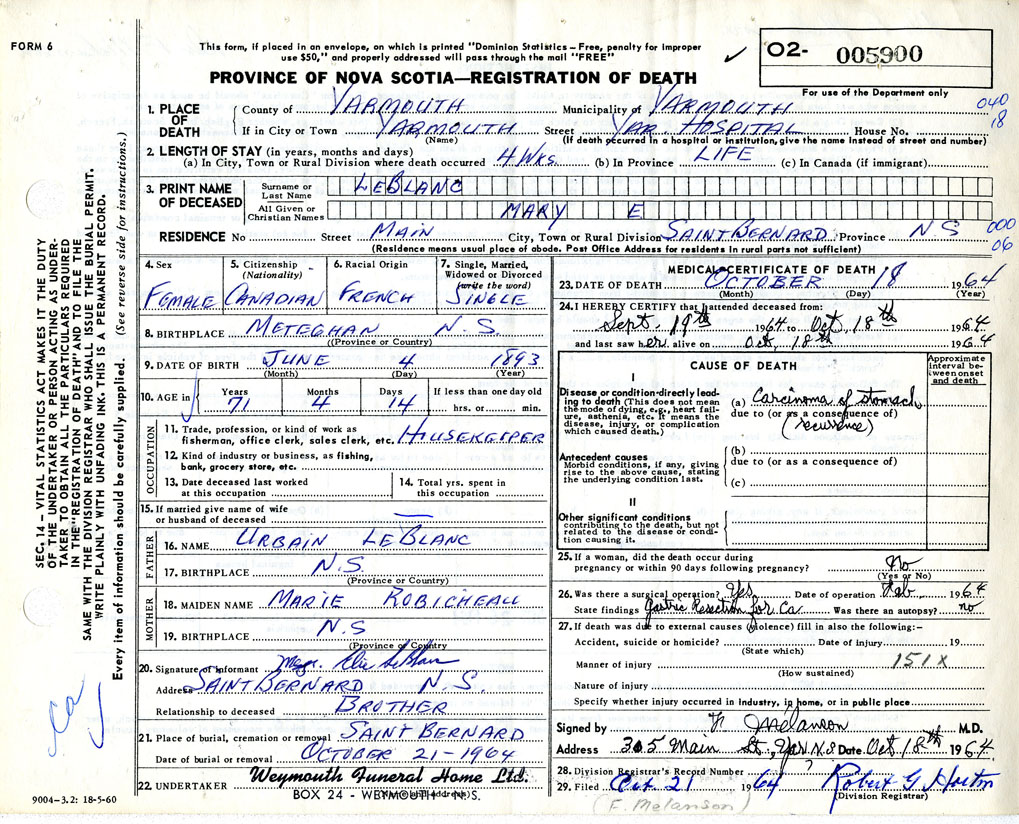 FORM 6
This form, if placed in an envelope, on which is printed "Dominion Statistics – Free, penalty for improper
use $50," and properly addressed will pass through the mail "FREE"
✓ O2- 005900
PROVINCE OF NOVA SCOTIA—REGISTRATION OF DEATH
For use of the Department only
1. PLACE OF DEATH County of YARMOUTH Municipality of YARMOUTH 040
If in City or Town YARMOUTH Street YAR. HOSPITAL House No. 18
(Name) (If death occurred in a hospital or institution, give the name instead of street and number)
2. LENGTH OF STAY (in years, months and days)
(a) In City, Town or Rural Division where death occurred 4 WKS. (b) In Province LIFE (c) In Canada (if immigrant)
3. PRINT NAME OF DECEASED Surname or Last Name LEBLANC
All Given or Christian Names MARY E
RESIDENCE No Street MAIN City, Town or Rural Division SAINT BERNARD Province N S 000 06
(Residence means usual place of abode. Post Office Address for residents in rural parts not sufficient)
4. Sex FEMALE
5. Citizenship (Nationality) CANADIAN
6. Racial Origin FRENCH
7. Single, Married, Widowed or Divorced (write the word) SINGLE
8. BIRTHPLACE METEGHAN N. S.
(Province or Country)
9. DATE OF BIRTH JUNE 4 1893
(Month) (Day) (Year)
10. AGE in Years 71 Months 4 Days 14 If less than one day old hrs. or min.
OCCUPATION
11. Trade, profession, or kind of work as fisherman, office clerk, sales clerk, etc. HOUSEKEEPER
12. Kind of industry or business, as fishing, bank, grocery store, etc.
13. Date deceased last worked at this occupation
14. Total yrs. spent in this occupation
15. If married give name of wife or husband of deceased —
FATHER
16. NAME URBAIN LEBLANC
17. BIRTHPLACE N.S.
(Province or Country)
MOTHER
18. MAIDEN NAME MARIE ROBICHEAU
19. BIRTHPLACE N.S
(Province or Country)
20. Signature of informant Msgr. Elie LeBlanc
Address SAINT BERNARD N.S.
Relationship to deceased BROTHER
21. Place of burial, cremation or removal SAINT BERNARD
Date of burial or removal OCTOBER 21-1964
22. UNDERTAKER Weymouth Funeral Home Ltd.
BOX 24 - WEYMOUTH - N.S.
9004–3.2: 18-5-60
MEDICAL CERTIFICATE OF DEATH
23. DATE OF DEATH OCTOBER 18 1964
(Month) (Day) (Year)
24. I HEREBY CERTIFY that I attended deceased from:
Sept. 19th 1964 to Oct. 18th 1964
and last saw her alive on Oct. 18th 1964
CAUSE OF DEATH
Approximate interval between onset and death
I
Disease or condition directly leading to death (This does not mean the mode of dying, e.g., heart failure, asthenia, etc. It means the disease, injury, or complication which caused death.)
(a) Carcinoma of stomach
due to (or as a consequence of)
(recurrence)
Antecedent causes
Morbid conditions, if any, giving rise to the above cause, stating the underlying condition last.
(b)
due to (or as a consequence of)
(c)
II
Other significant conditions
contributing to the death, but not related to the disease or condition causing it.
25. If a woman, did the death occur during pregnancy or within 90 days following pregnancy? No
(Yes or No)
26. Was there a surgical operation? Yes Date of operation Feb. 1964
State findings Gastric Resection for Ca Was there an autopsy? no
27. If death was due to external causes (violence) fill in also the following:–
Accident, suicide or homicide? Date of injury 19
(State which)
Manner of injury 151X
(How sustained)
Nature of injury
Specify whether injury occurred in industry, in home, or in public place
Signed by F. Melanson M.D.
Address 305 Main St., Yar N S Date Oct 18th 1964
28. Division Registrar's Record Number
29. Filed Oct. 21 1964 Robert G Horton
(Division Registrar)
(F. Melanson)
SEC. 14 – VITAL STATISTICS ACT MAKES IT THE DUTY
OF THE UNDERTAKER OR PERSON ACTING AS UNDER-
TAKER TO OBTAIN ALL THE PARTICULARS REQUIRED
IN THE "REGISTRATION OF DEATH" AND TO FILE THE
SAME WITH THE DIVISION REGISTRAR WHO SHALL ISSUE THE BURIAL PERMIT.
WRITE PLAINLY WITH UNFADING INK. THIS IS A PERMANENT RECORD.
Every item of information should be carefully supplied. (See reverse side for instructions.)
Ca